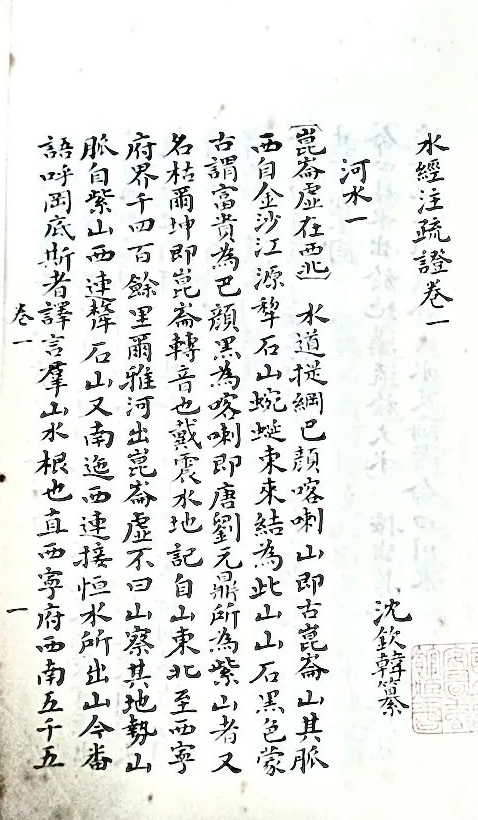 水經注疏證卷一
沈欽韓纂
河水一
崑崙虛在西北 水道提綱巴顔喀喇山即古崑崙山其脈
西自金沙江源犂石山蜿蜒東來結為此山山石黑色蒙
古謂富貴為巴顔黑為喀喇即唐劉元鼎所為紫山者又
名枯爾坤即崑崙轉音也戴震水地記自山東北至西寧
府界千四百餘里爾雅河出崑崙虛不曰山察其地勢山
脈自紫山西連犛石山又南迤西連接恒水所出山今番
語呼岡底斯者譯言羣山水根也直西寧府西南五千五
卷一
一